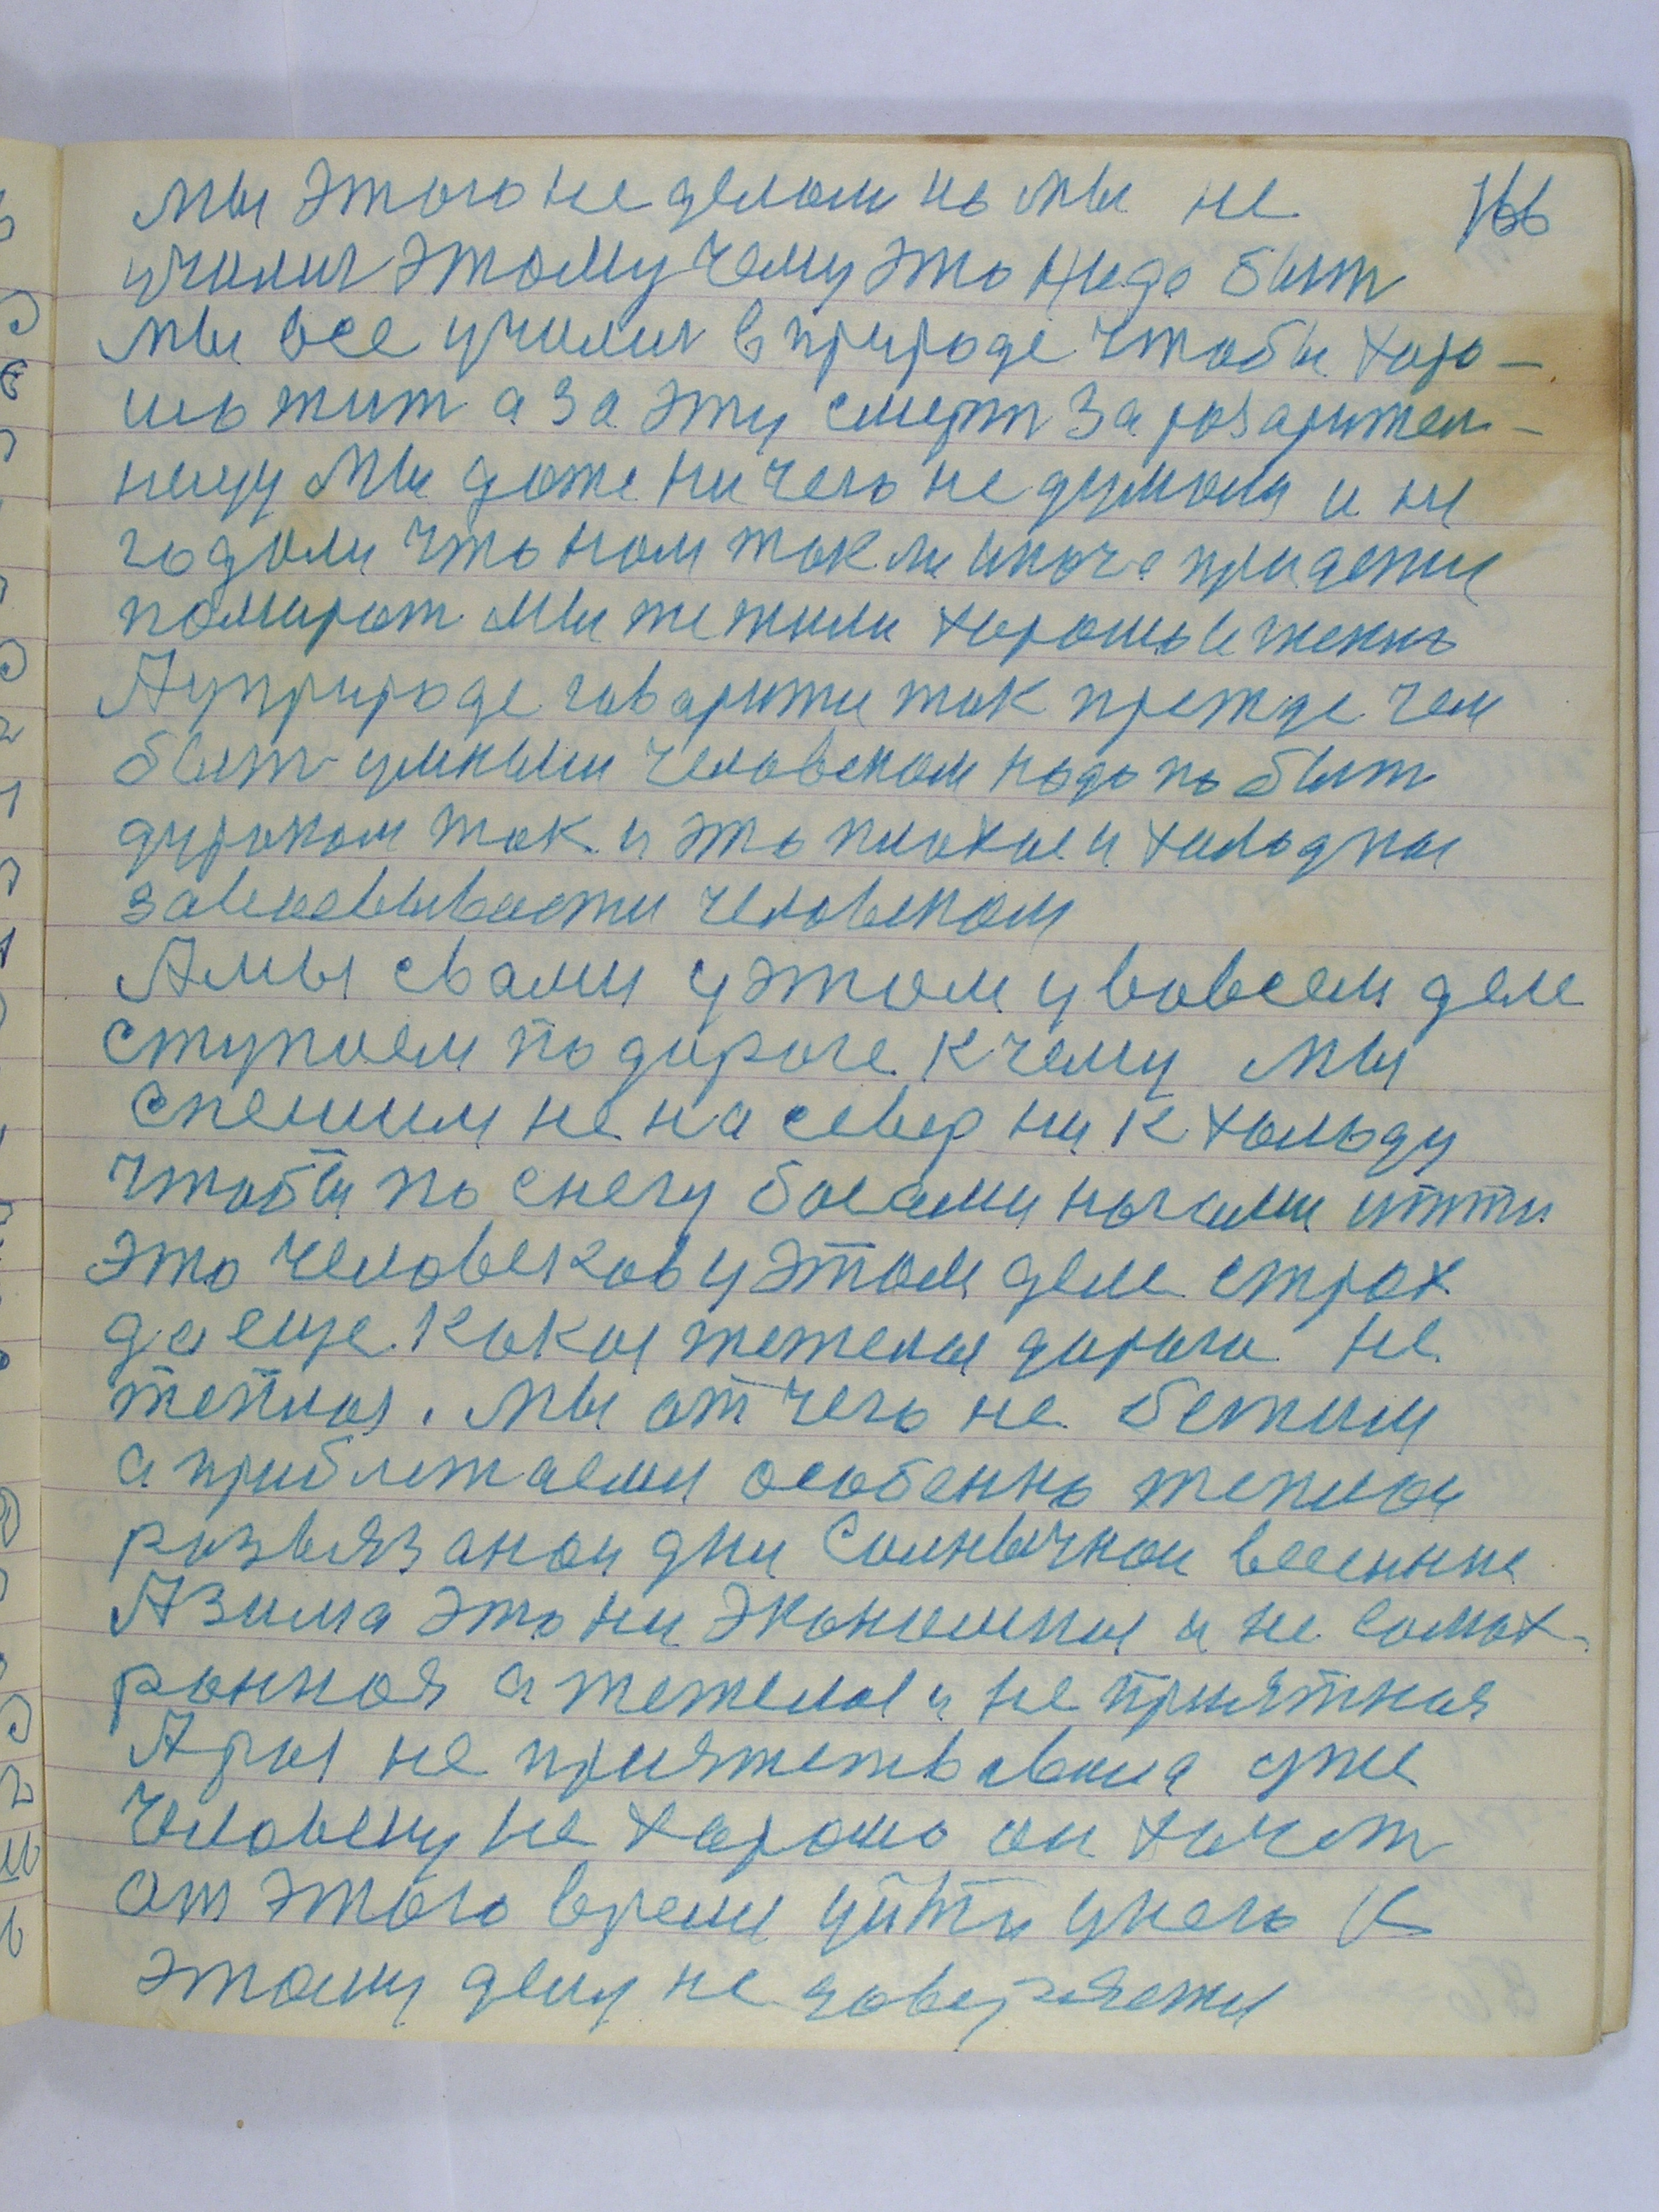 166
мы этого не делали но мы не
училися этому чему это надо быт
мы все училися в природе чтобы харо-
шо жит а за эту смерт за разарител-
ницу мы даже ни чего не думали и не
гадоли что нам так ли иначе придется
помират мы же жили харошо и тепло
А у природе говарится так прежде чем
быт умным человеком надо по быт
дураком так и это плохое и холодное
завлоевывоется человеком
А мы с вами у этом у вовсем деле
ступаем по дароге к чему мы
спешим не на север ни к холоду
чтобы по снегу босами ногами итти
это человеков у этом деле страх
да еще какая тежелая дарога не
теплая. мы от чего не бежим
а приближаемся особенно теплои
развязанои дни Солнычнои весенние
А зима это ни экономная и не сомох-
ронноя а тежелая и не приятная
А роз не приятетвавона уже
человеку не харошо он хочет
от этого время уйти унего к
этому делу не доверяется